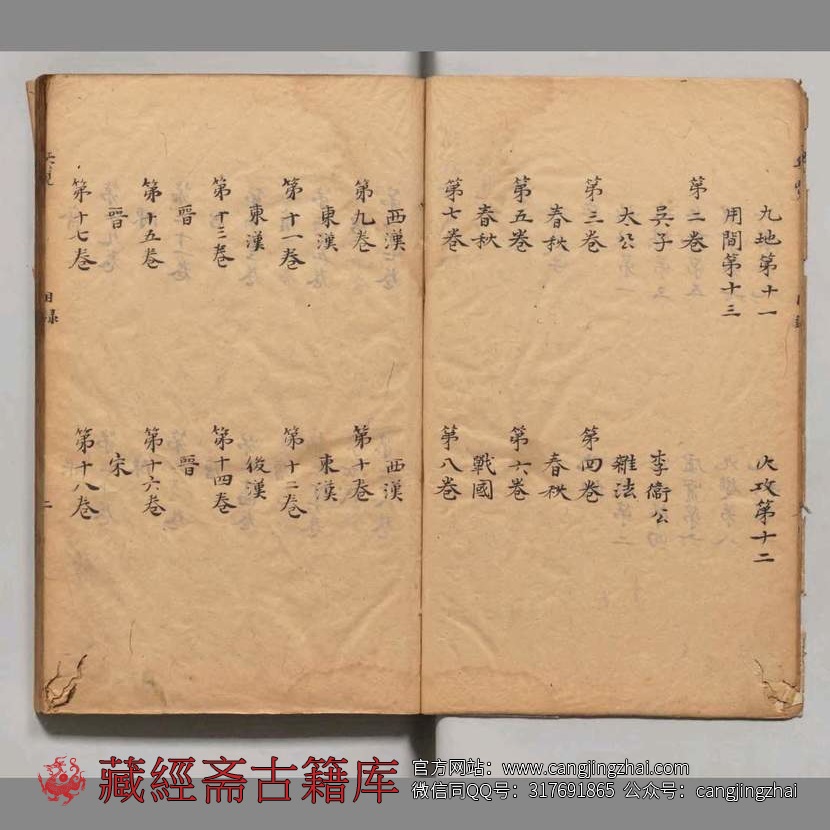 九地第十一　火攻第十二
用間第十三
第二卷
吳子　李衞公
太公　雜法
第三卷　第四卷
春秋　春秋
第五卷　第六卷
春秋　戰國
第七卷　第八卷
西漢　西漢
第九卷　第十卷
東漢　東漢
第十一卷　第十二卷
東漢　後漢
第十三卷　第十四卷
晉　晉
第十五卷　第十六卷
晉　宋
第十七卷　第十八卷
目録
二
藏經斋古籍库
官方网站：www.cangjingzhai.com
微信同QQ号：317691865 公众号：cangjingzhai